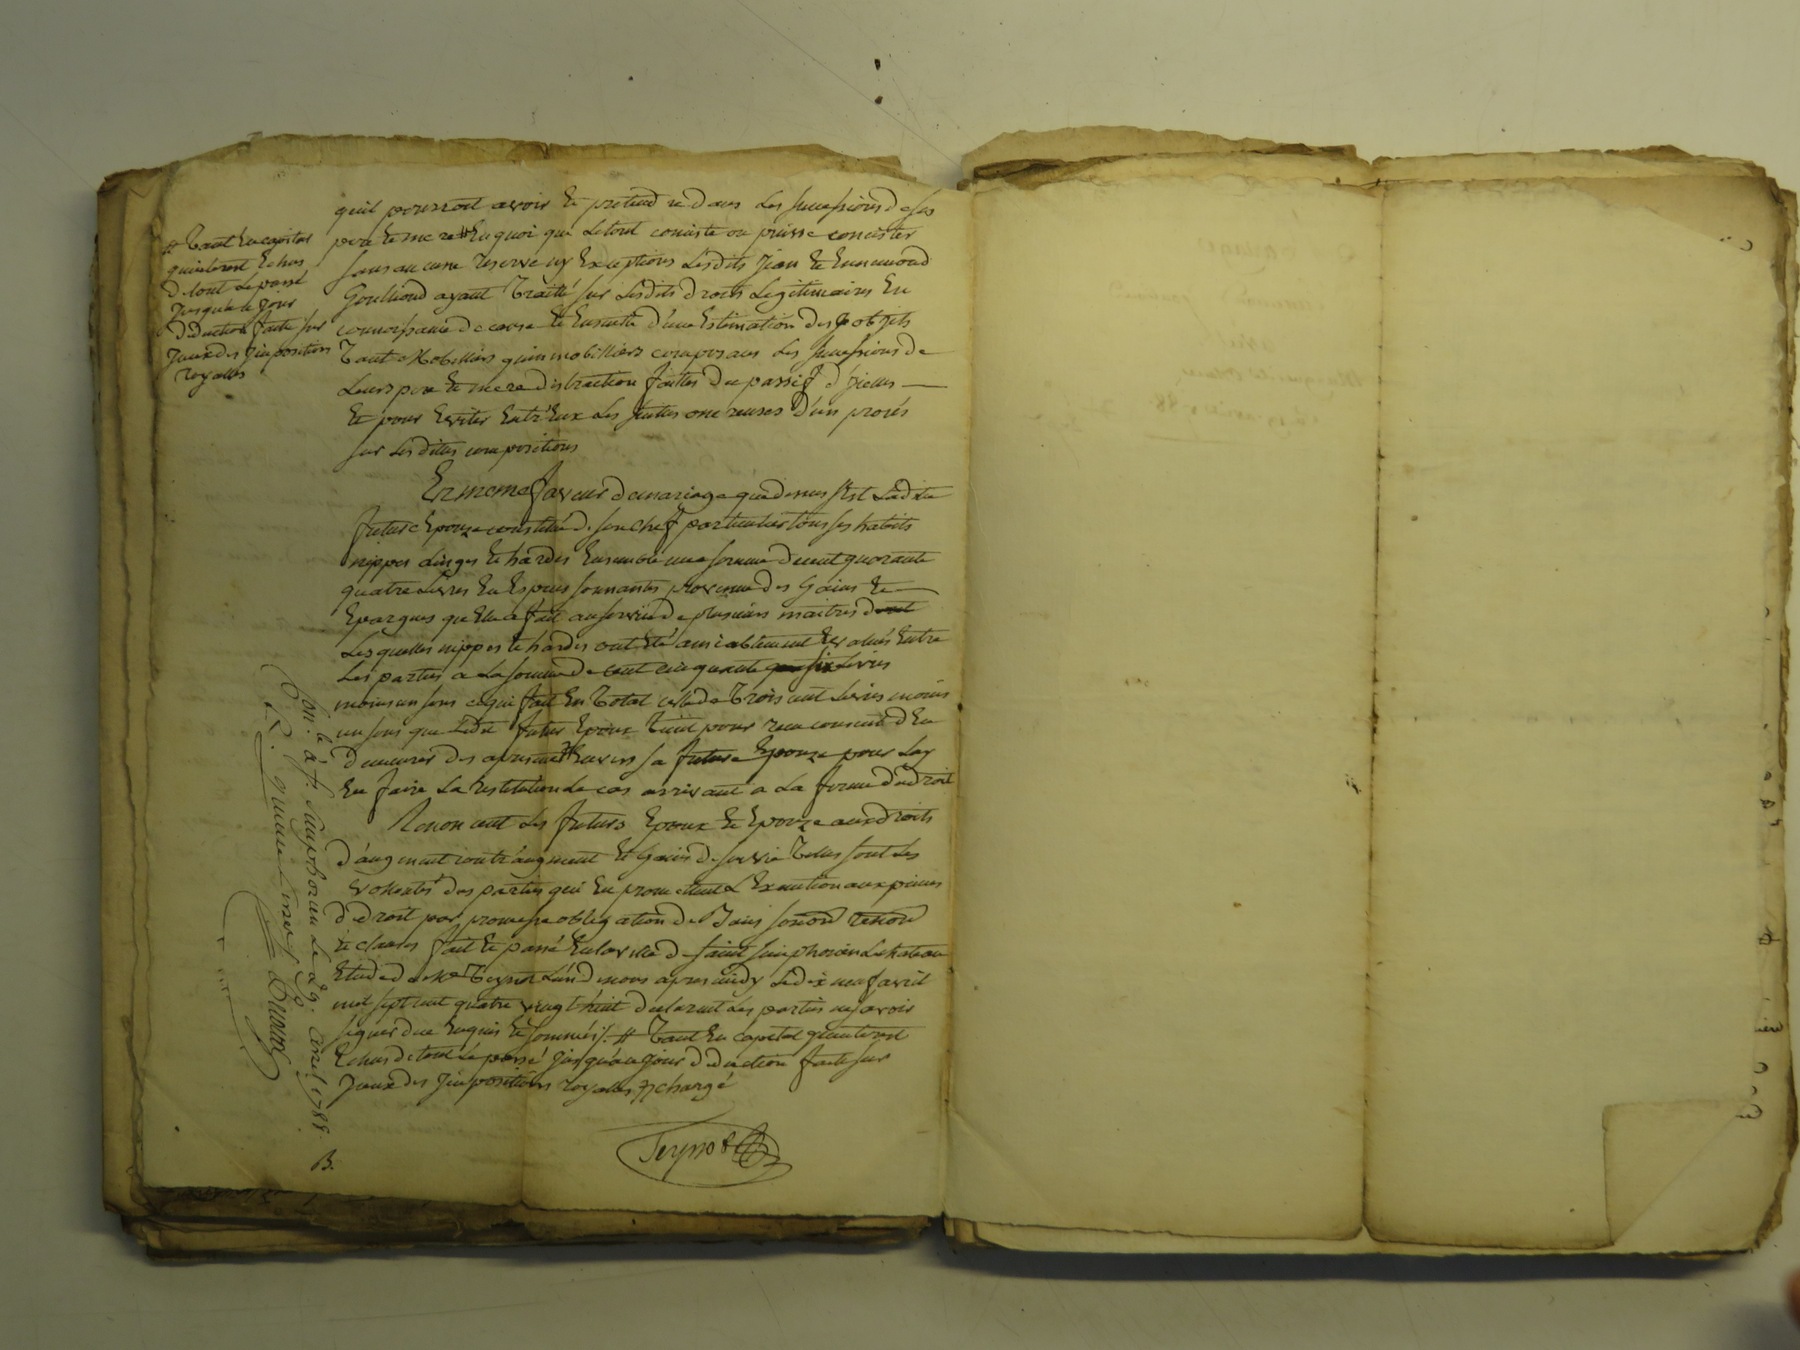 quil pourroit avoir Et pretendre dans Les successions de ses
pere Et mere # En quoi que Letout consiste ou puisse concister
sans aucune reserve ny Exceptions Lesdits Jean Et Ennemond
Goulliond ayant Traitté sur Lesdits droits Legitimaires En
connoissance de cause Et Ensuite d'une Estimation des objets
Tant Mobiliers quimmobilliers composans Les successions de
Leurs pere Et mere distraction faittes du passif d'jcelles
Et pour Eviter Entr'Eux Les suites onereuses d'un procés
sur Lesdittes compositions
# Tant En capital
quinterest Echus
de tout Le passé
Jusqu'à ce Jour
deduction faite sur
Jceux des Jmpositions
royalles
En meme faveur de mariage que dessus s'est Ladite
future Epouze constitué de son chef particulier tous ses habits
nippes Linges Et hardes Ensemble une somme de cent quarante
quatre Livres En Especes sonnantes provenue des Gains Et
Epargnes quElle a fait au service de plusieurs maitres
Lesquelles nippes Et hardes ont Eté amiablement Evalués Entre
Les parties a La somme de cent cinquante six Livres
moins un sous ce qui fait En Total celle de Trois cent Livres moins
un sous que Ledit futur Epoux Tient pour recu consent d'En
demeurer des apresent chargé Envers sa future Epouze pour Luy
En faire La restitution Le cas arrivant a La forme du droit
Renoncent Les futurs Epoux Et Epouze aux droits
d'augment contr'augment Et Gains de survie Telles sont Les
volontés des parties qui En promettent L'Execution aux peines
de droit par promesse obligation de Biens
Et clauses fait Et passé En la ville de saint simphorien Le chateau
Etude de Me Teynot L'un de nous apres midy Le dix neuf avril
mil sept cent quatre vingt huit declarent Les parties ne savoir
signer de ce Enquis Et sommés /. # Tant En capital quinterest
Echus de tout Le passé Jusqu'à ce Jour deduction faite sur
Jceux des Jmpositions royalles chargé
Teynot
Con. le à St. Simphorien Le 29. avril 1788.
R. quinze
B.